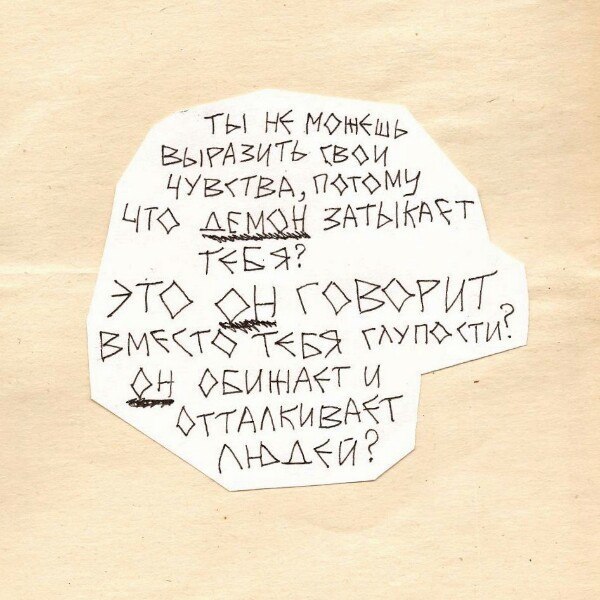 ТЫ НЕ МОЖЕШЬ
ВЫРАЗИТЬ СВОИ
ЧУВСТВА, ПОТОМУ
ЧТО ДЕМОН ЗАТЫКАЕТ
ТЕБЯ?
ЭТО ОН ГОВОРИТ
ВМЕСТО ТЕБЯ ГЛУПОСТИ?
ОН ОБИЖАЕТ И
ОТТАЛКИВАЕТ
ЛЮДЕЙ?